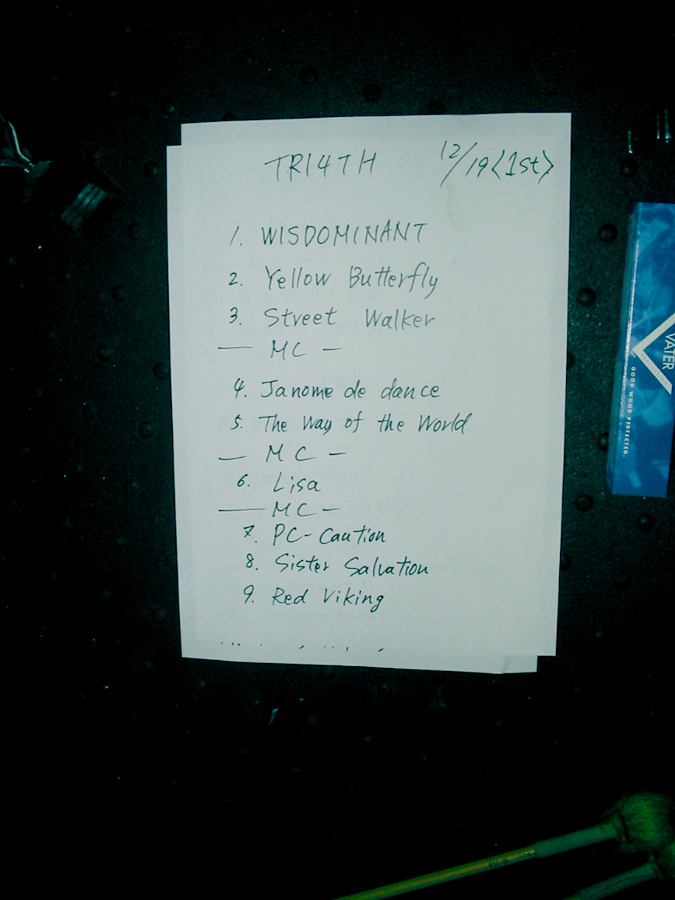 TRI4TH 12/19<1st>
1. WISDOMINANT
2. Yellow Butterfly
3. Street Walker
— MC —
4. Janome de dance
5. The Way of the World
— MC —
6. Lisa
— MC —
7. PC-Caution
8. Sister Salvation
9. Red Viking
VATER
GOOD WOOD PERFECTED.